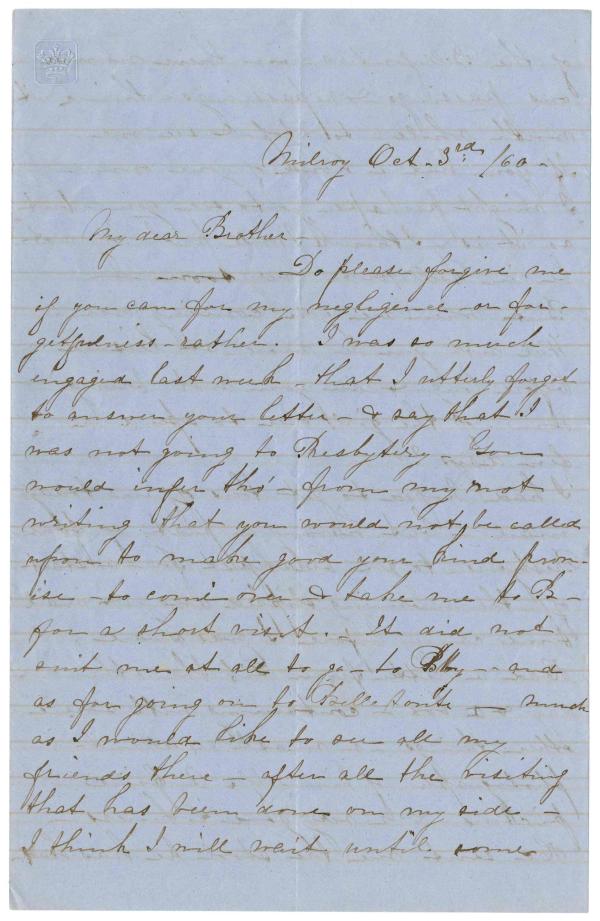 Milroy Oct. 3rd, /60 -
My dear Brother.
Do please forgive me
if you can for my negligence - or for-
getfulness - rather. I was so much
engaged last week - that I utterly forgot
to answer your letter - & say that I
was not going to Presbytery - You
would infer tho' - from my not
writing that you would not be called
upon to make good your kind prom-
ise - to come over & take me to B -
for a short visit. - It did not
suit me at all to go - to - and
as for going on to Bellefonte - much
as I would like to see all my
friends there - after all the visiting
that has been done on my side -
I think I will wait until some